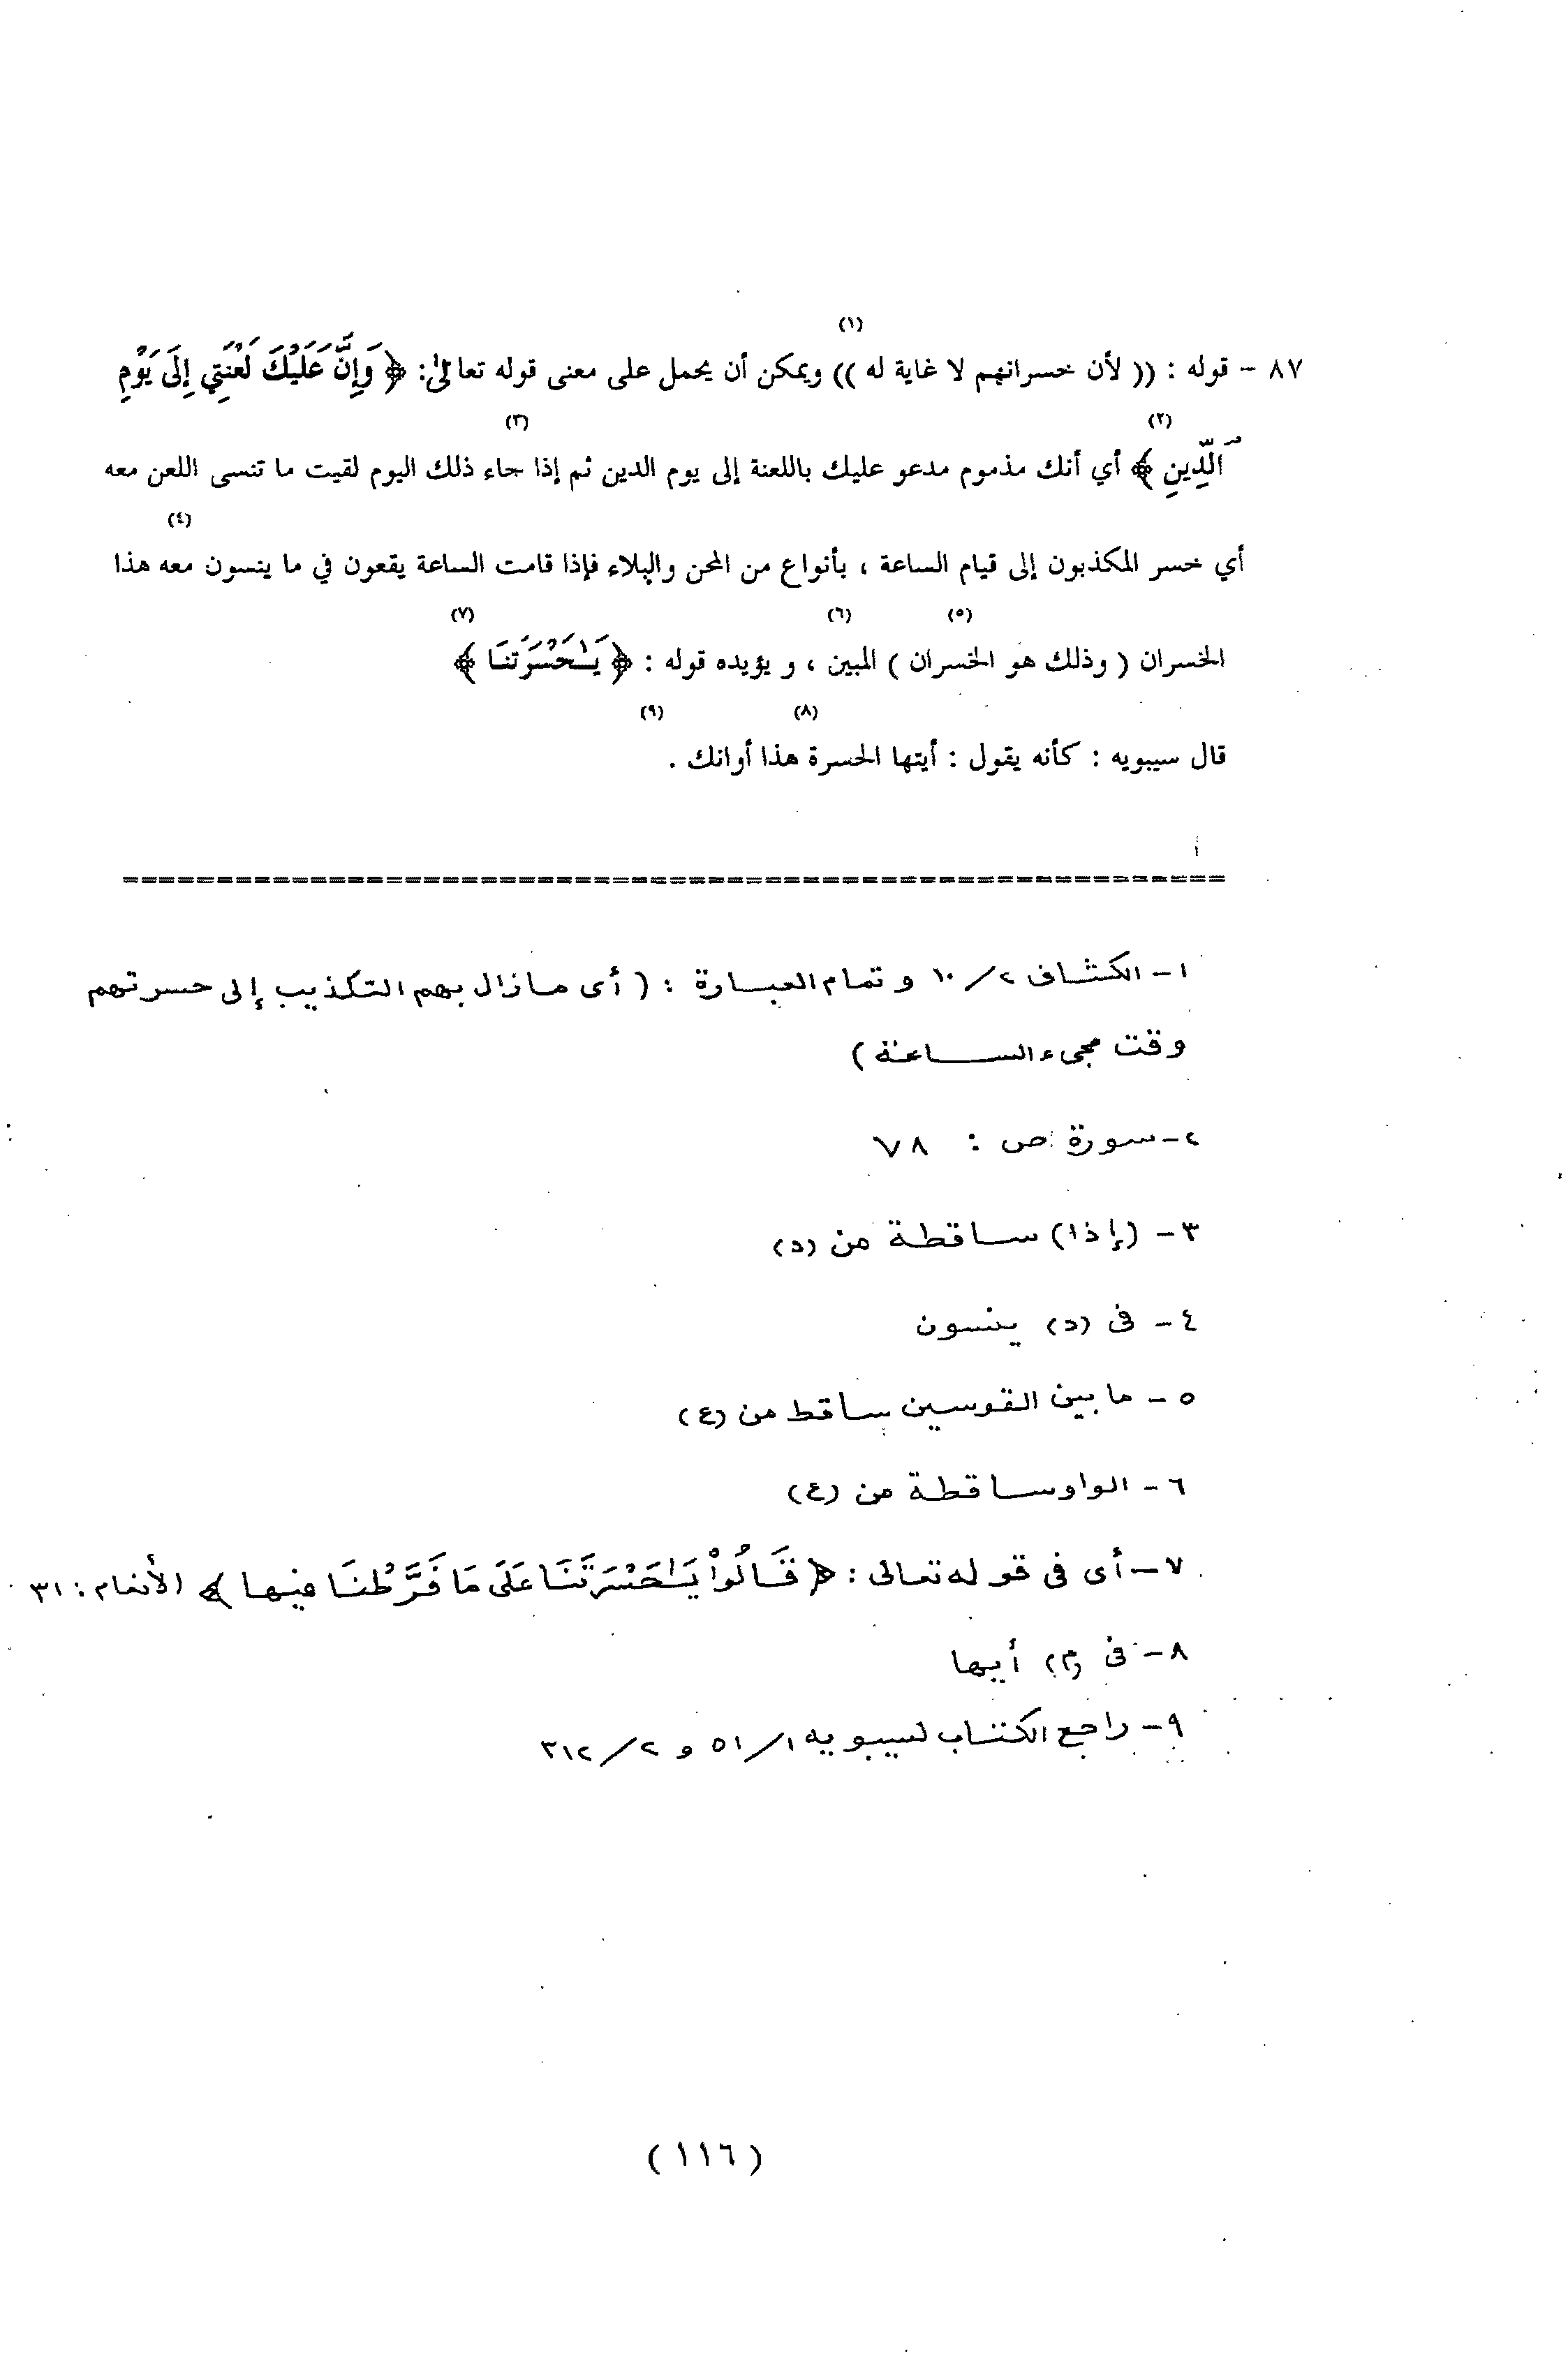 (١)
٨٧ - قوله : (( لأن خسرانهم لا غاية له )) ويمكن أن يحمل على معنى قوله تعالى: ﴿ وَإِنَّ عَلَيْكَ لَعْنَتِي إِلَىٰ يَوْمِ
(٢) (٣)
ٱلدِّينِ ﴾ أي أنك مذموم مدعو عليك باللعنة إلى يوم الدين ثم إذا جاء ذلك اليوم لقيت ما تنسى اللعن معه
(٤)
أي خسر المكذبون إلى قيام الساعة ، بأنواع من المحن والبلاء فإذا قامت الساعة يقعون في ما ينسون معه هذا
(٥) (٦) (٧)
الخسران ( وذلك هو الخسران ) المبين ، و يؤيده قوله : ﴿ يَـٰحَسْرَتَنَا ﴾
(٨) (٩)
قال سيبويه : كأنه يقول : أيتها الحسرة هذا أوانك .
================================================
١ - الكشاف ٢/ ١٠ و تمام العبارة : ( أى مازال بهم التكذيب إلى حسرتهم
وقت مجىء الساعة )
٢ - سورة ص : ٧٨
٣ - (إذا) ساقطة من (د)
٤ - فى (د) ينسون
٥ - ما بين القوسين ساقط من (ع)
٦ - الواو ساقطة من (ع)
٧ - أى فى قوله تعالى : ﴿ قَالُواْ يَـٰحَسْرَتَنَا عَلَىٰ مَا فَرَّطْنَا فيها ﴾ الأنعام : ٣١
٨ - فى (م) أيها
٩ - راجع الكتاب لسيبويه ١/ ٥١ و ٢/ ٣١٢
( ١١٦ )